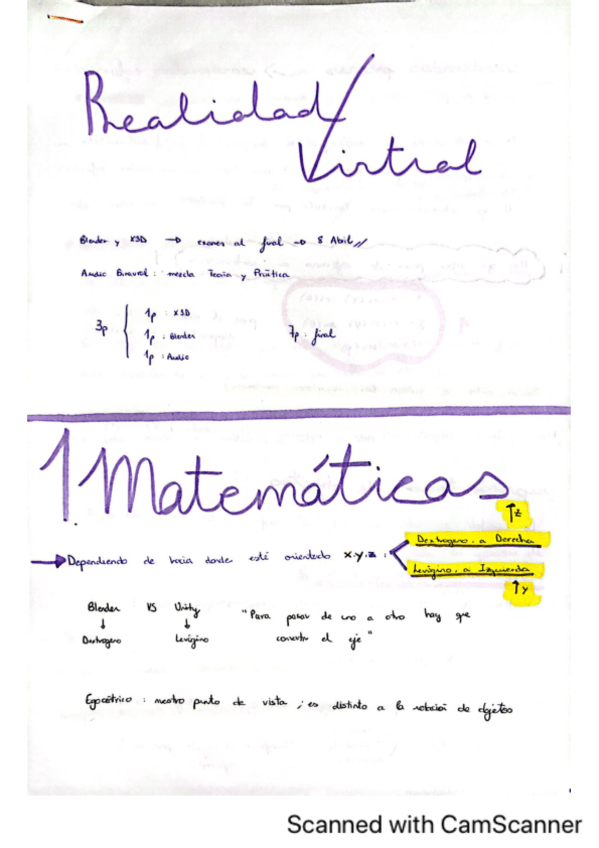 Realidad
Virtual
Blender y X3D → examen al final → 8 Abril //
Audio Binaural : mezcla Teoría y Práctica
3p { 1p : X3D
1p : Blender
1p : Audio
7p : final
1 Matemáticas
↑z
Dextrogeno. a Derecha
→ Dependiendo de hacia donde esté orientado x.y.z :
Levógino. a Izquierda
↑y
Blender VS Unity
↓ ↓
Dextrogeno Levógino
"Para pasar de uno a otro hay que
convertir el eje"
Egocétrico : nuestro punto de vista ; es distinto a la rotación de objetos
Scanned with CamScanner